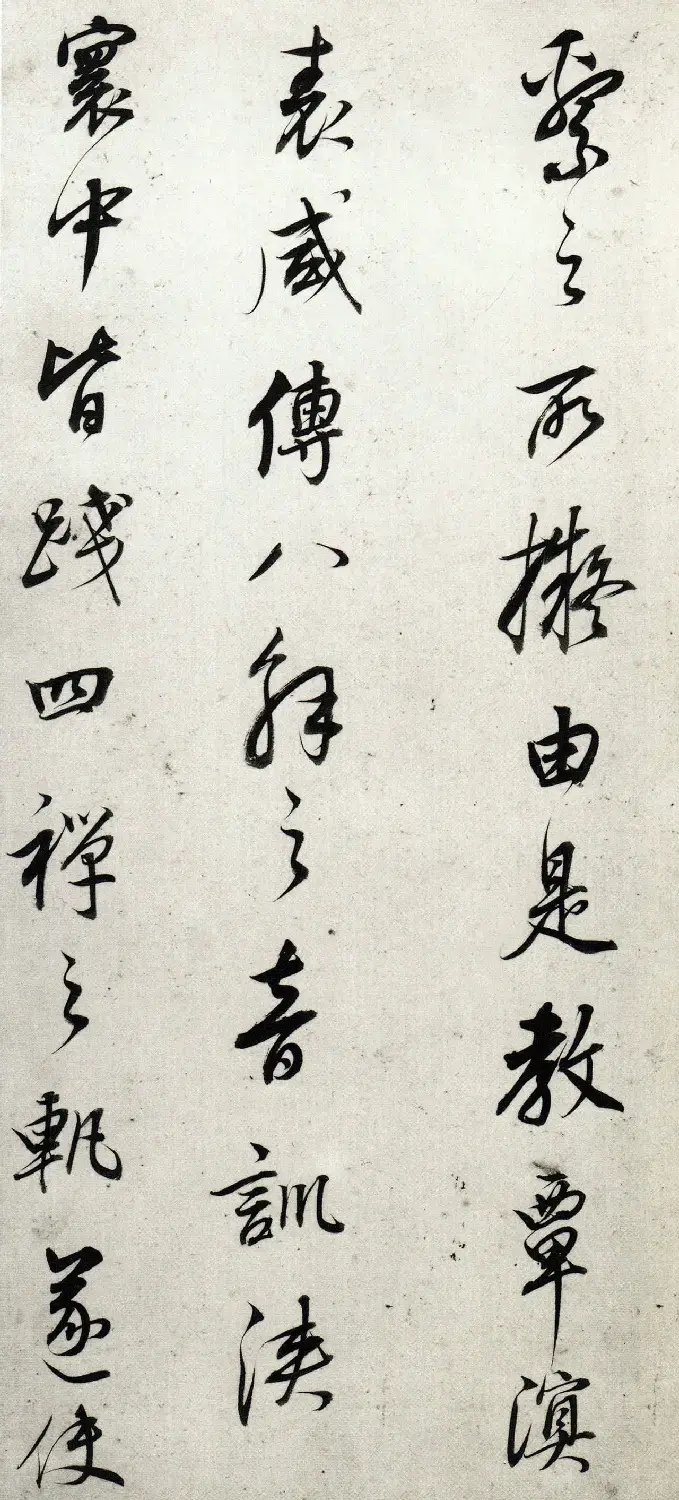 繫之所擬由是教覃溟
表咸傳八解之音訓浹
寰中皆踐四禪之軌遂使